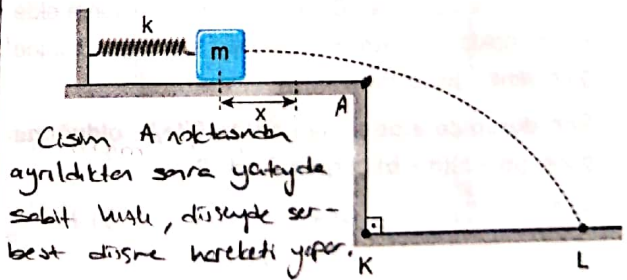 k
m
x
A
Cisim A noktasından
ayrıldıkten sonra yatayda
sabit hızlı, düşeyde ser-
best düşme hareketi yapar.
K
L